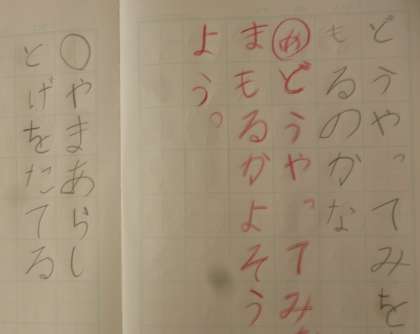 どうやってみを
もるのかな
めどうやってみ
まもるかよそう
よう。
○やまあらし
とげをたてる